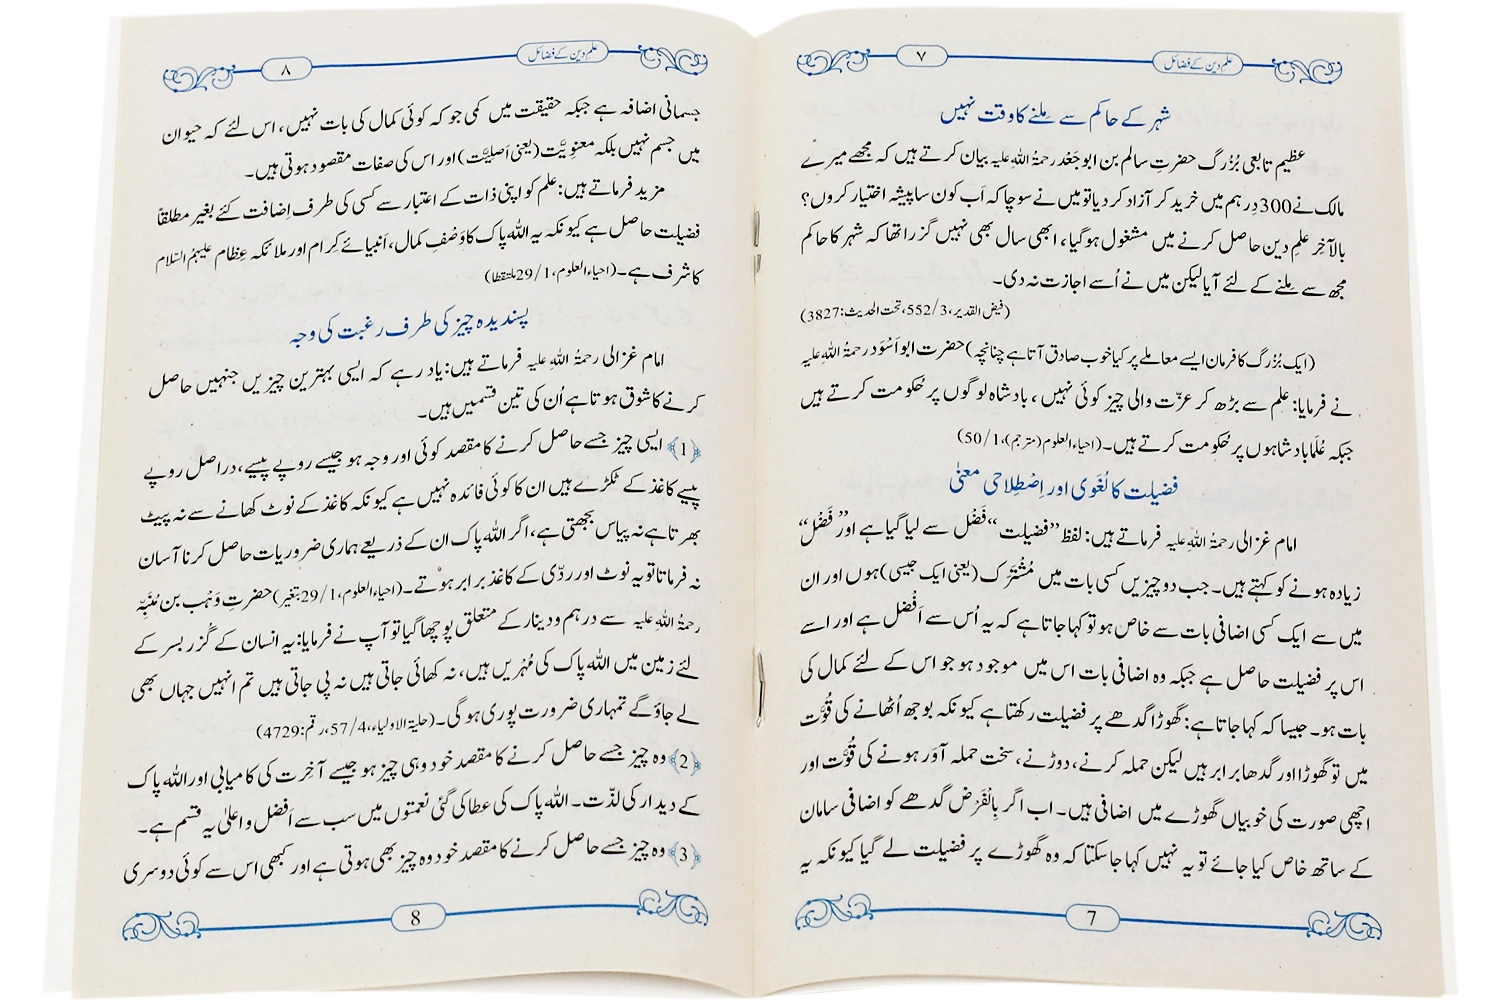 علمِ دین کے فضائل
۷
شہر کے حاکم سے مِلنے کا وقت نہیں
عظیم تابعی بُزُرگ حضرتِ سالم بن ابو جَعْد رحمۃُ اللہِ علیہ بیان کرتے ہیں کہ مجھے میرے
مالک نے 300 دِرہم میں خرید کر آزاد کر دیا تو میں نے سوچا کہ اَب کون سا پیشہ اختیار کروں؟
بالآخِر علمِ دین حاصل کرنے میں مشغول ہو گیا، ابھی سال بھی نہیں گزرا تھا کہ شہر کا حاکم
مجھ سے مِلنے کے لئے آیا لیکن میں نے اُسے اجازت نہ دی۔
(فیض القدیر، 3/552، تحت الحدیث: 3827)
(ایک بُزُرگ کا فرمان ایسے معاملے پر کیا خوب صادق آتا ہے چنانچہ) حضرت ابو اَسْوَد رحمۃُ اللہِ علیہ
نے فرمایا: علم سے بڑھ کر عزّت والی چیز کوئی نہیں، بادشاہ لوگوں پر حُکومت کرتے ہیں
جبکہ عُلَما بادشاہوں پر حُکومت کرتے ہیں۔ (احیاء العلوم (مترجم)، 1/50)
فضیلت کا لُغَوی اور اِصْطِلاحی معنیٰ
امام غزالی رحمۃُ اللہِ علیہ فرماتے ہیں: لفظ ”فضیلت“ فَضْل سے لیا گیا ہے اور ”فَضْل“
زیادہ ہونے کو کہتے ہیں۔ جب دو چیزیں کسی بات میں مُشْتَرَک (یعنی ایک جیسی) ہوں اور ان
میں سے ایک کسی اضافی بات سے خاص ہو تو کہا جاتا ہے کہ یہ اُس سے اَفْضل ہے اور اسے
اس پر فضیلت حاصل ہے جبکہ وہ اضافی بات اس میں موجود ہو جو اس کے لئے کمال کی
بات ہو۔ جیسا کہ کہا جاتا ہے: گھوڑا گدھے پر فضیلت رکھتا ہے کیونکہ بوجھ اُٹھانے کی قُوَّت
میں تو گھوڑا اور گدھا برابر ہیں لیکن حملہ کرنے، دوڑنے، سخت حملہ آوَر ہونے کی قُوَّت اور
اچھی صورت کی خوبیاں گھوڑے میں اضافی ہیں۔ اب اگر بِالْفَرْض گدھے کو اضافی سامان
کے ساتھ خاص کیا جائے تو یہ نہیں کہا جا سکتا کہ وہ گھوڑے پر فضیلت لے گیا کیونکہ یہ
7
علمِ دین کے فضائل
۸
جسمانی اضافہ ہے جبکہ حقیقت میں کمی جو کہ کوئی کمال کی بات نہیں، اس لئے کہ حیوان
میں جسم نہیں بلکہ معنوِیَّت (یعنی اَصلِیَّت) اور اس کی صفات مقصود ہوتی ہیں۔
مزید فرماتے ہیں: علم کو اپنی ذات کے اعتبار سے کسی کی طرف اِضافت کئے بغیر مطلقاً
فضیلت حاصل ہے کیونکہ یہ اللہ پاک کا وَصْفِ کمال، اَنبیائے کرام اور ملائکہ عِظام علیہمُ السّلام
کا شرف ہے۔ (احیاء العلوم، 1/29 ملتقطا)
پسندیدہ چیز کی طرف رغبت کی وجہ
امام غزالی رحمۃُ اللہِ علیہ فرماتے ہیں: یاد رہے کہ ایسی بہترین چیزیں جنہیں حاصل
کرنے کا شوق ہوتا ہے اُن کی تین قسمیں ہیں۔
﴿1﴾ ایسی چیز جسے حاصل کرنے کا مقصد کوئی اور وجہ ہو جیسے روپے پیسے، دراصل روپے
پیسے کاغذ کے ٹکڑے ہیں ان کا کوئی فائدہ نہیں ہے کیونکہ کاغذ کے نوٹ کھانے سے نہ پیٹ
بھرتا ہے نہ پیاس بجھتی ہے، اگر اللہ پاک ان کے ذریعے ہماری ضروریات حاصل کرنا آسان
نہ فرماتا تو یہ نوٹ اور ردّی کے کاغذ برابر ہوتے۔ (احیاء العلوم، 1/29 بتغیر) حضرتِ وَہْب بن مُنَبِّہ
رحمۃُ اللہِ علیہ سے درہم و دینار کے متعلق پوچھا گیا تو آپ نے فرمایا: یہ انسان کے گُزر بسر کے
لئے زمین میں اللہ پاک کی مُہْریں ہیں، نہ کھائی جاتی ہیں نہ پی جاتی ہیں تم انہیں جہاں بھی
لے جاؤ گے تمہاری ضرورت پوری ہو گی۔ (حلیۃ الاولیاء، 4/57، رقم: 4729)
﴿2﴾ وہ چیز جسے حاصل کرنے کا مقصد خود وہی چیز ہو جیسے آخِرت کی کامیابی اور اللہ پاک
کے دیدار کی لذّت۔ اللہ پاک کی عطا کی گئی نعمتوں میں سب سے اَفضل و اعلیٰ یہ قسم ہے۔
﴿3﴾ وہ چیز جسے حاصل کرنے کا مقصد خود وہ چیز بھی ہوتی ہے اور کبھی اس سے کوئی دوسری
8